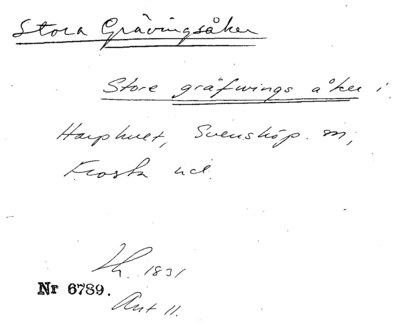 Stora Grävingsåker
Store gräfwings åker i
Harphult, Svensköp. sn,
Frosta hd.
Lh. 1831
Nr 6789.
Akt 11.